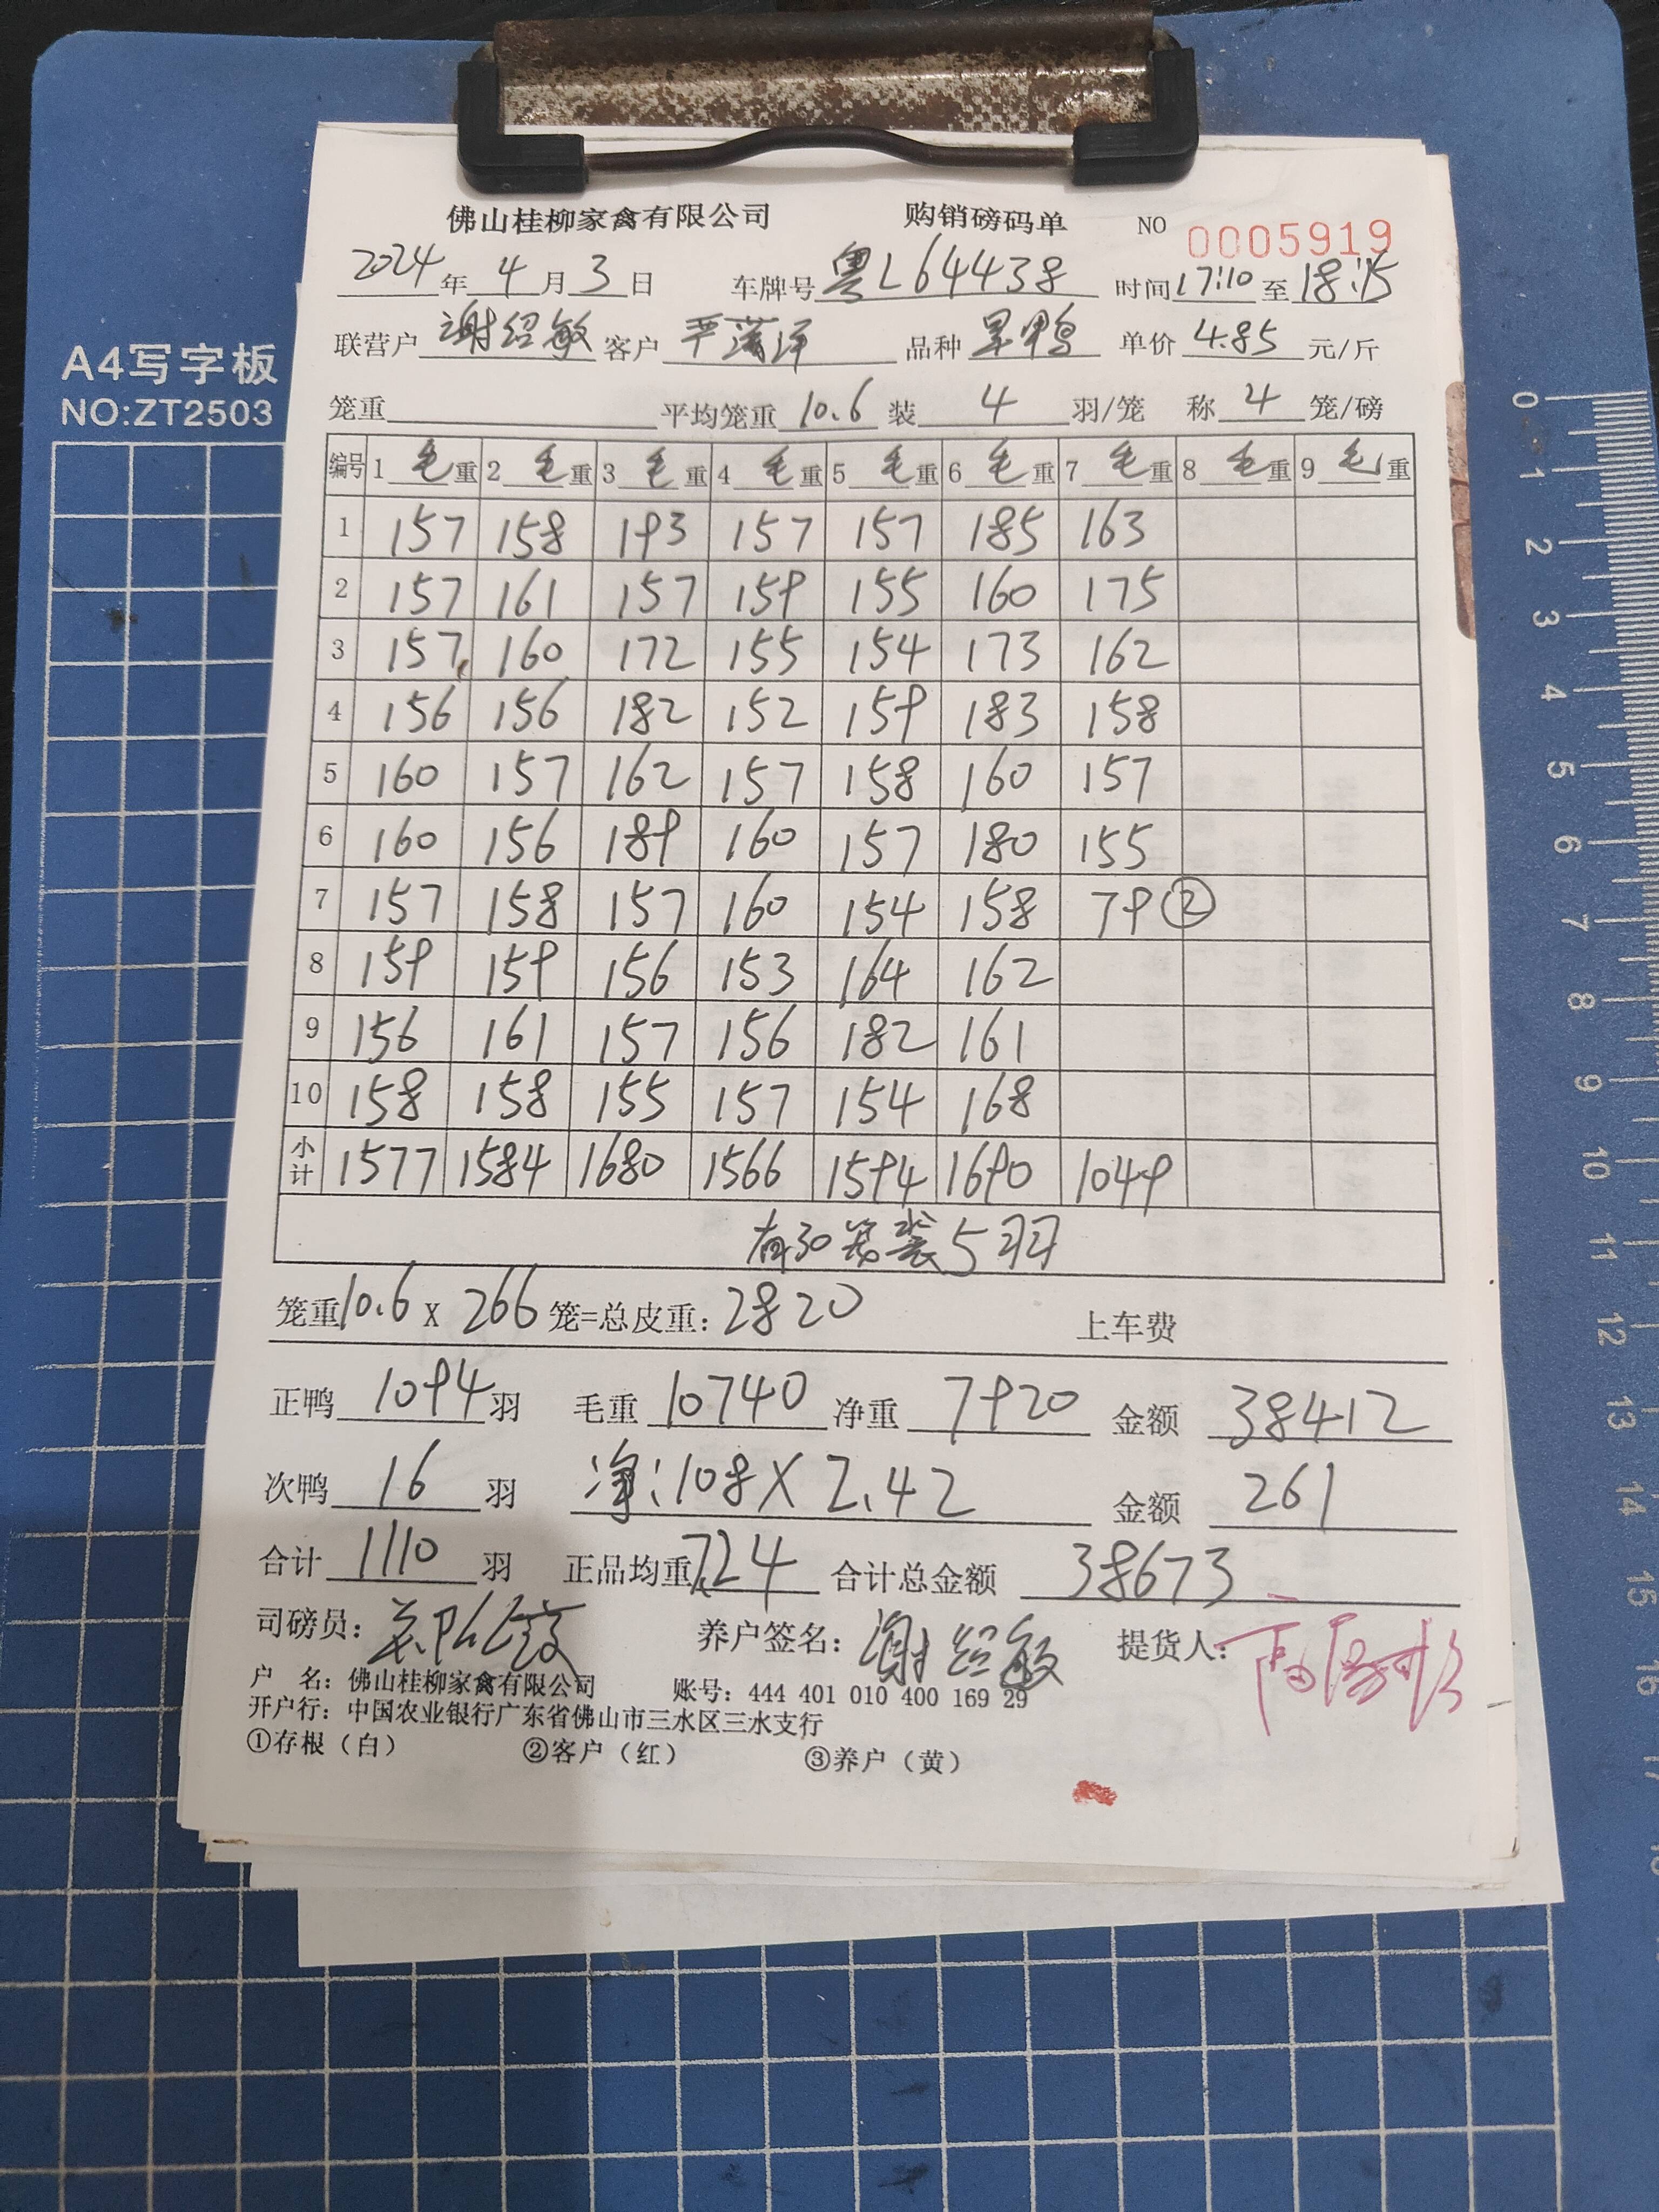 佛山桂柳家禽有限公司 购销磅码单 NO 0005919
2024年4月3日 车牌号 粤L64438 时间17:10至18:15
联营户 谢绍敏 客户 品种 单价 4.85 元/斤
笼重 平均笼重 10.6 装 4 羽/笼 称 4 笼/磅
编号 1 毛重 2 毛重 3 毛重 4 毛重 5 毛重 6 毛重 7 毛重 8 毛重 9 毛重
1 157 158 193 157 157 185 163
2 157 161 157 159 155 160 175
3 157 160 172 155 154 173 162
4 156 156 182 152 159 183 158
5 160 157 162 157 158 160 157
6 160 156 189 160 157 180 155
7 157 158 157 160 154 158 79 ②
8 159 159 156 153 164 162
9 156 161 157 156 182 161
10 158 158 155 157 154 168
小计 1577 1584 1680 1566 1594 1690 1049
有30笼装5羽
笼重10.6 X 266 笼=总皮重: 2820 上车费
正鸭 1094 羽 毛重 10740 净重 7920 金额 38412
次鸭 16 羽 净:108X2.42 金额 261
合计 1110 羽 正品均重 7.24 合计总金额 38673
司磅员: 养户签名: 谢绍敏 提货人:
户 名: 佛山桂柳家禽有限公司 账号: 444 401 010 400 169 29
开户行: 中国农业银行广东省佛山市三水区三水支行
①存根（白） ②客户（红） ③养户（黄）
A4写字板
NO:ZT2503
0
1
2
3
4
5
6
7
8
9
10
11
12
13
14
15
16
17